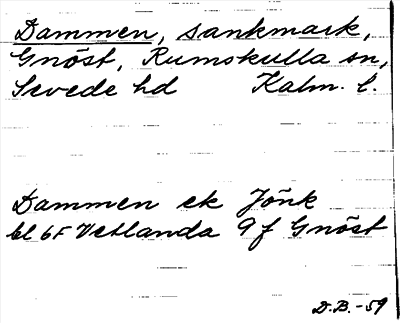 Dammen, sankmark,
Gnöst, Rumskulla sn,
Sevede hd Kalm. l.
Dammen ek Jönk
bl 6F Vetlanda 9f Gnöst
D.B.-59